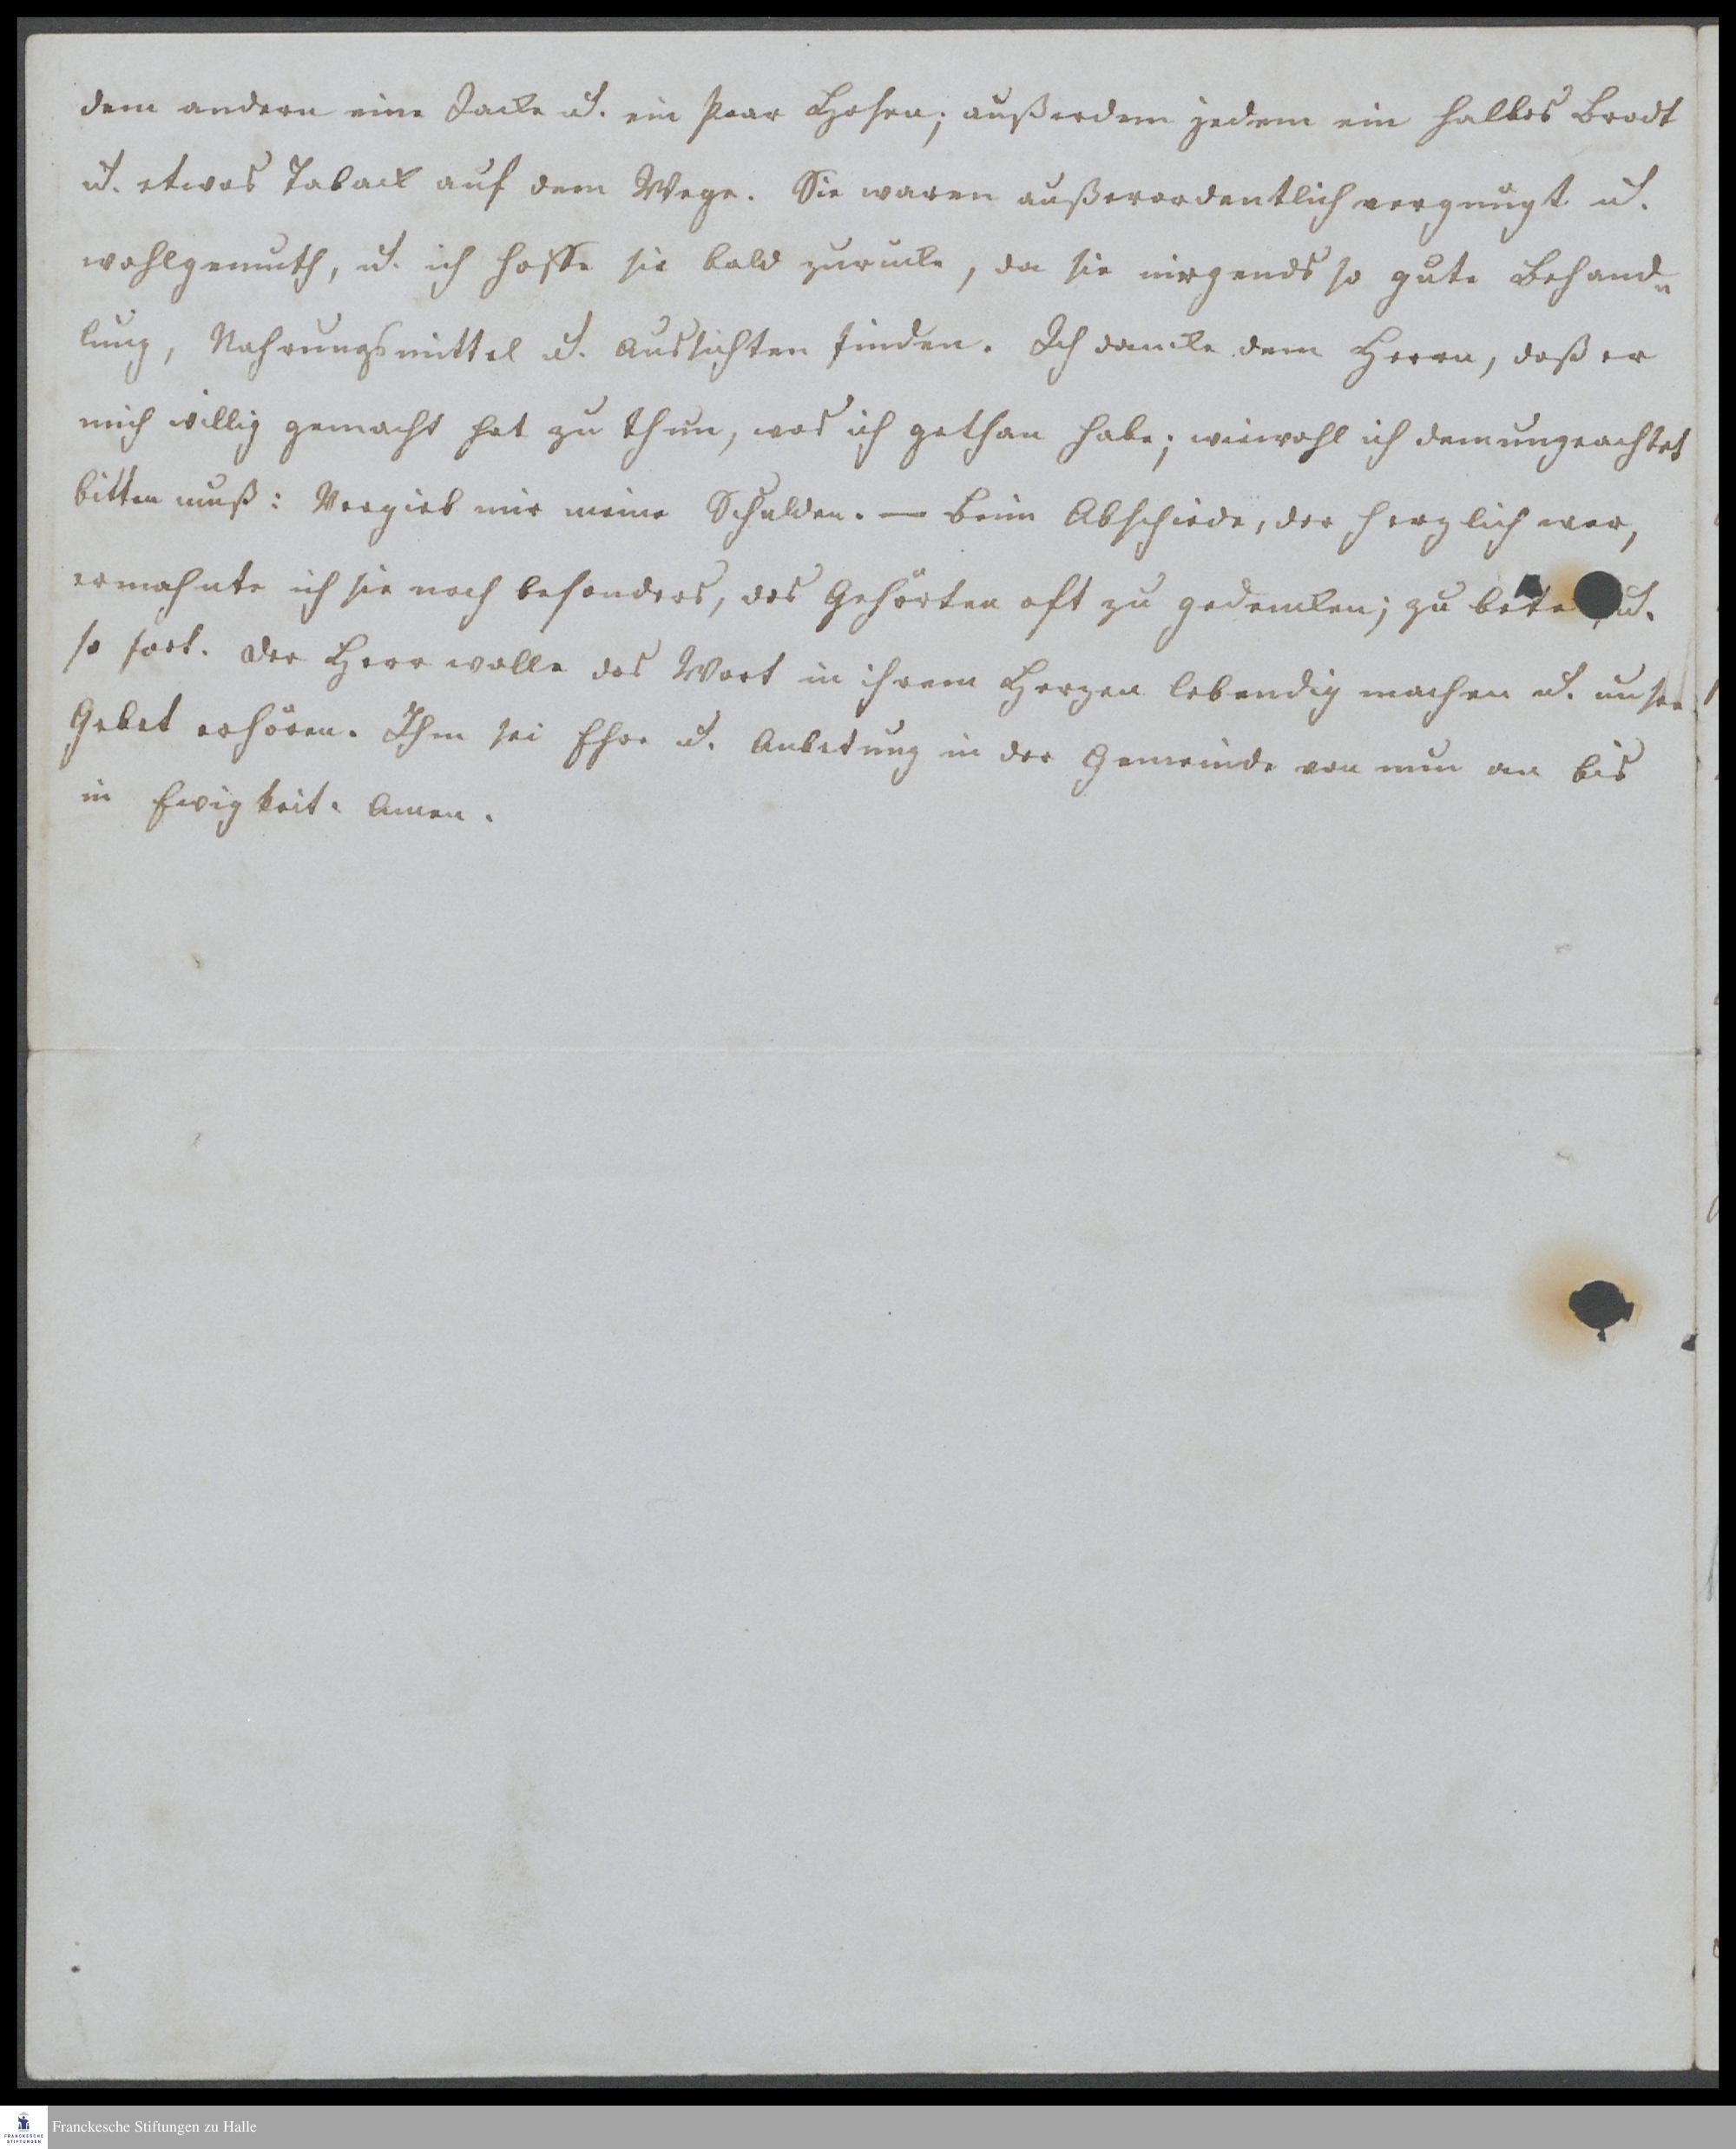 dem andern eine Jacke u. ein paar Hosen; außerdem jedem ein halbes Brodt
u. etwas Taback auf dem Wege. Sie waren außerordentlich vergnügt u.
wohlgemuth, u. ich hoffe sie bald zurücke, da sie nirgends so gute Behand-
lung, Nahrungsmittel u. Aussichten finden. Ich dancke dem Herrn, daß er
mich willig gemacht hat zu thun, was ich gethan habe; wiewohl ich demungeachtet
bitten muß: Vergieb mir meine Schulden. — Beim Abschiede, der herzlich war,
ermahnte ich sie noch besonders, des Gehörten oft zu gedencken; zu bete u.
so fort. Der Herr wolle das Wort in ihrem Herzen lebendig machen u. unser
Gebet erhören. Ihm sei Ehre u. Anbetung in der Gemeinde von nun an bis
in Ewigkeit. Amen.
Franckesche Stiftungen zu Halle
FRANCKESCHE
STIFTUNGEN